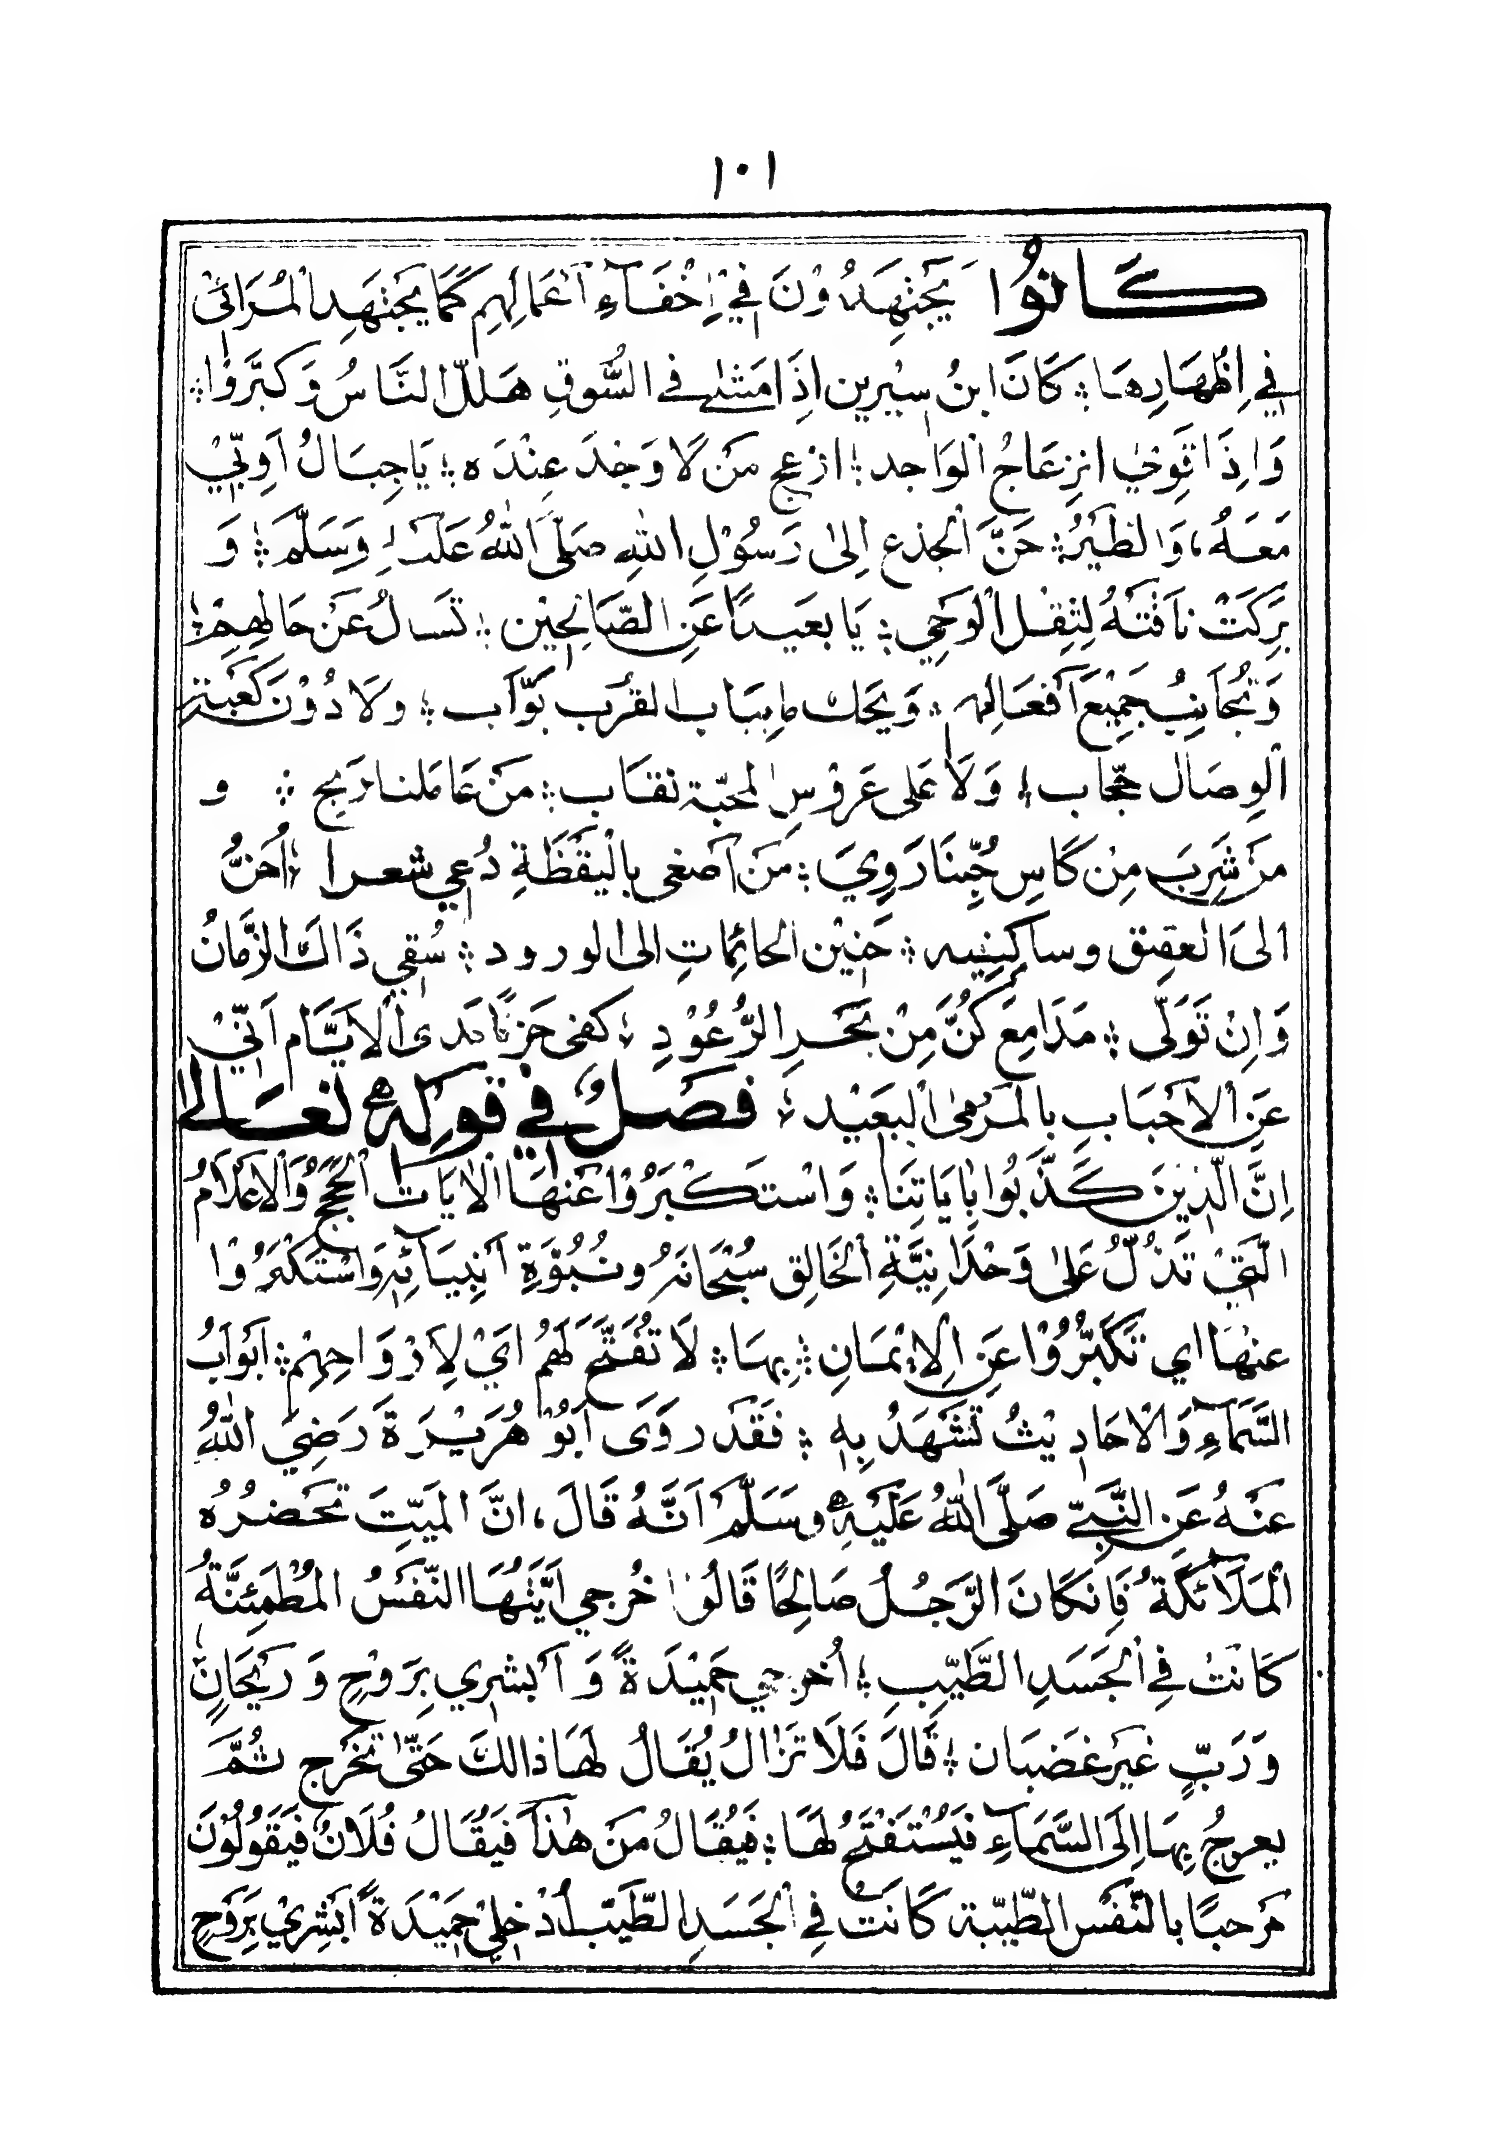 ١٠١
كَانُوا يَجْتَهِدُوْنَ فِيْ إِخْفَآءِ أَعْمَالِهِمْ كَمَا يَجْتَهِدِ الْمُرَائِيْ
فِي اِظْهَارِهَا ؛ كَانَ ابْنُ سِيْرِين اِذَا مَشٰى فِي السُّوقِ هَلَّلَ النَّاسُ وَكَبَّرَوْا ؛
وَاِذَا قَوِيَ انْزِعَاجُ الْوَاجد ؛ ازعج مَنْ لَا وَجْدَ عِنْدَه ؛ يَا جِبَالُ اَوِّبِيْ
مَعَهُ، وَالطَّيْرُ ؛ حَنَّ الْجِذع اِلىٰ رَسُوْلِ اللهِ صَلَّى اللهُ عَلَيْهِ وَسَلَّمَ ؛ وَ
بَرَكَتْ نَاقَتُهُ لِثِقْلِ الْوَحْيِ ؛ يَا بَعَيداً عَنِ الصَّالِحِيْن ؛ تَسَالُ عَنْ حَالِهِمْ ؛
وَتُجَانِبُ جَمِيْعَ اَفْعَالِهِم ؛ وَيحَك مَا بِبَابِ القُرْب بَوَّاب ؛ ولَا دُوْنَ كَعْبَة
اَلوِصَال حجَّاب ؛ وَلَا عَلى عَرُوْسِ المحبّة نقَاب ؛ مَنْ عَامَلنا رَبِح ؛ و
مَنْ شَرِبَ مِنْ كَاسِ حُبِّنَا رَوِيَ ؛ مَنْ اَصْغى بِالْيَقْظَةِ دُعي شعرا ؛ اَحنُّ
الىَ العقِيق وساكِنِيه ؛ حَنِيْن الحائِمَاتِ الى الورود ؛ سُقِي ذَاكَ الزَّمانُ
وَاِنْ تَوَلّى ؛ مَدَامِعَ كُنَّ مِنْ بَحْرِ الرُّعُوْدِ ؛ كَفى حَزَنًا مَدى الْاَيَّام اَنّيْ
عَنِ الْاَحْبَابِ بالْمَرْمَى الْبَعَيْد ؛ فَصَلٌ فِيْ قَوْلِهٖ تَعَالٰى
اِنَّ الَّذِينَ كَذَّبُوا بِايَاتِنَا ؛ وَاسْتَكْبَرُوْا عَنهَا الْاٰيَات الْحُجَجُ وَالْاَعْلَامُ
الَّتِيْ تَدُلُّ عَلىٰ وَحْدَانِيَّةِ الْخَالِق سُبْحَانَهُ ونُبُوَّةِ اَنْبِيَآئِهِ وَاسْتَكْبَرُوْا
عنهَا اي تَكَبَّرُوْا عَنِ الِايْمَانِ ؛ بِهَا ؛ لَا تُفَتَّحُ لَهُمْ ايْ لِاَرْوَاحِهِمْ ؛ اَبْوَابُ
السَّمَآءِ وَالْاَحَادِيْثُ تَشْهَدُ بِهٖ ؛ فَقَدْ رَوَى اَبُوْ هُرَيْرَةَ رَضِيَ اللهُ
عَنْهُ عَنِ النَّبِيّ صَلَّى اللهُ عَلَيْهِ وسَلَّمَ اَنَّهُ قَالَ، انَّ الْمَيِّتَ تَحْضرُهُ
الْمَلَآئِكَةُ فَاِنْ كَانَ الرَّجُلُ صَالِحًا قَالُوْا خُرجي اَيَّتُهَا النَّفْسُ الْمُطْمَئِنَّةُ
كَانَتْ فِي الْجَسَدِ الطَّيِّبِ ؛ اُخرجي حَمِيْدَةً وَاَبْشرِي بِرَوْحٍ وَرَيْحَانٍ
وَرَبٍّ غَيْر غَضبَان ؛ قَالَ فَلَا تَزَالُ يُقَالُ لهَا ذالكَ حَتّى تَخْرُج ثُمَّ
يعرجُ بِهَا اِلَى السَّمَآءِ فَيُسْتَفْتَحُ لهَا ؛ فَيُقَالُ مَنْ هٰذَا فَيُقَالُ فُلَانٌ فَيَقُوْلُوْنَ
مَرحبًا بالنَّفْسِ الطَّيّبة كَانَتْ فِي الْجَسَدِ الطَّيِّب اُدْخليْ حَمِيْدَةً اَبْشرِيْ بِرَوْحٍ